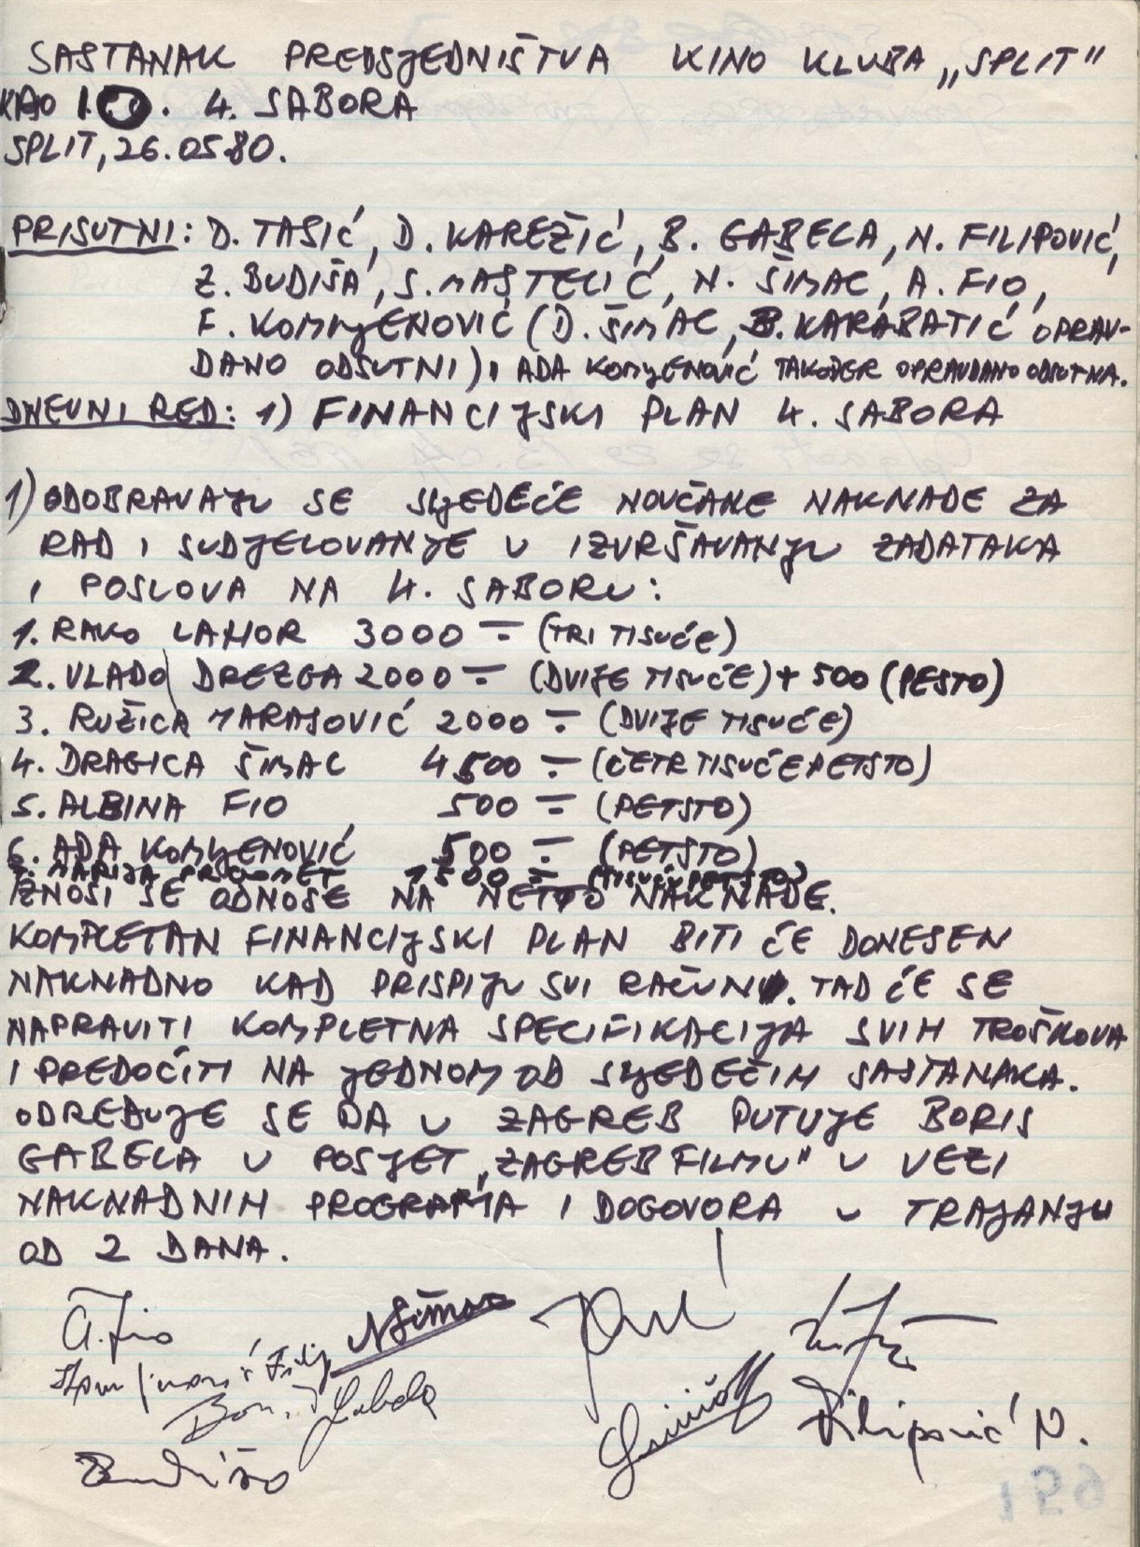 SASTANAK PREDSJEDNIŠTVA KINO KLUBA „SPLIT"
KAO I.O. 4. SABORA
SPLIT, 26.05.80.
PRISUTNI: D. TASIĆ, D. KAREŽIĆ, B. GABELA, N. FILIPOVIĆ,
Z. BUDIŠA, S. MASTELIĆ, N. ŠIMAC, A. FIO,
F. KOMNJENOVIĆ (D. ŠIMAC, B. KARABATIĆ OPRAV-
DANO ODSUTNI), ADA KOMNJENOVIĆ TAKOĐER OPRAVDANO ODSUTNA.
DNEVNI RED: 1) FINANCIJSKI PLAN 4. SABORA
1) ODOBRAVAJU SE SLJEDEĆE NOVČANE NAKNADE ZA
RAD I SUDJELOVANJE U IZVRŠAVANJU ZADATAKA
I POSLOVA NA 4. SABORU:
1. RAKO LAHOR 3000 = (TRI TISUĆE)
2. VLADO DREZGA 2000 = (DVIJE TISUĆE) + 500 (PESTO)
3. RUŽICA MARASOVIĆ 2000 = (DVIJE TISUĆE)
4. DRAGICA ŠIMAC 4500 = (ČETR TISUĆE PETSTO)
5. ALBINA FIO 500 = (PETSTO)
6. ADA KOMNJENOVIĆ 500 = (PETSTO)
7. MARIJA 1500 = (TISUĆU PETSTO)
IZNOSI SE ODNOSE NA NETTO NAKNADE.
KOMPLETAN FINANCIJSKI PLAN BITI ĆE DONESEN
NAKNADNO KAD PRISPIJU SVI RAČUNI. TAD ĆE SE
NAPRAVITI KOMPLETNA SPECIFIKACIJA SVIH TROŠKOVA
I PREDOČITI NA JEDNOM OD SLJEDEĆIH SASTANAKA.
ODREĐUJE SE DA U ZAGREB PUTUJE BORIS
GABELA U POSJET „ZAGREB FILMU" U VEZI
NAKNADNIH PROGRAMA I DOGOVORA U TRAJANJU
OD 2 DANA.
A. Fio
N Šimac
Boris Gabela
Filipović N.
Budiša
159